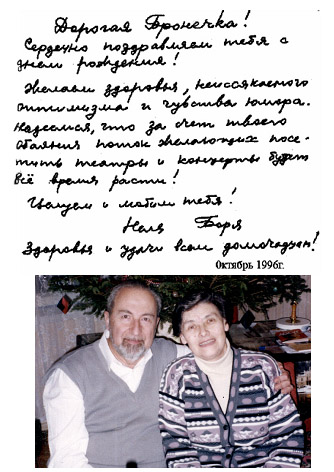 Дорогая Бронечка!
Сердечно поздравляем тебя с
днем рождения!
Желаем здоровья, неиссякаемого
оптимизма и чувства юмора.
Надеемся, что за счет твоего
обаяния поток желающих посе-
тить театры и концерты будет
всё время расти!
Целуем и любим тебя!
Неля Боря
Здоровья и удачи всем домочадцам!
Октябрь 1996г.